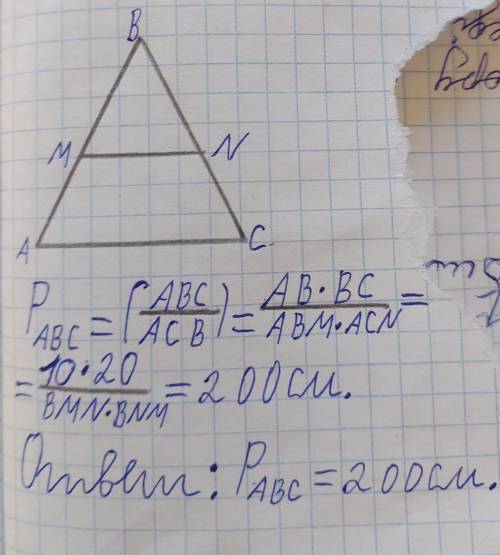 B
M N
A C
P_ABC = (ABC/ACB) = AB·BC/ABM·ACN =
= 10·20/BMN·BNM = 200см.
Ответ: P_ABC = 200см.